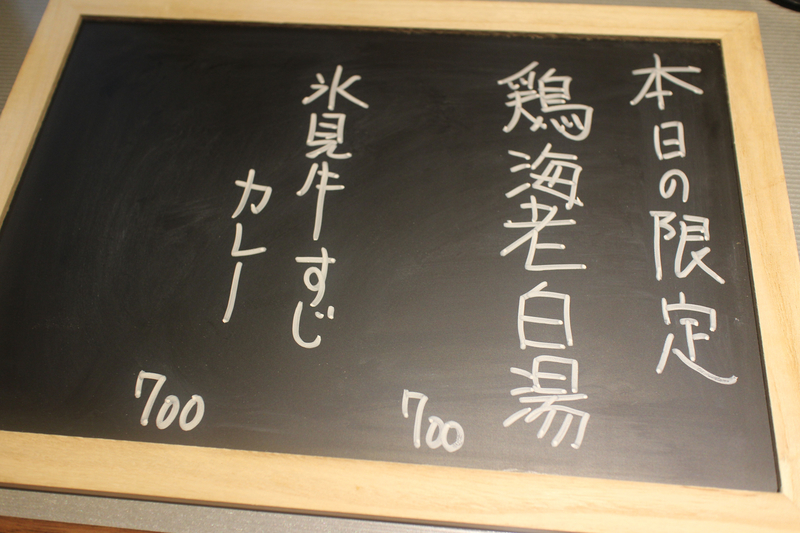 本日の限定
鶏海老白湯
700
氷見牛すじ
カレー
700